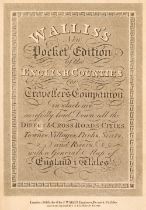 WALLIS'S
New
Pocket Edition
of the
ENGLISH COUNTIES
or
Travellers Companion
in which are
carefully laid Down all the
DIRECT & CROSS ROADS, CITIES,
Towns, Villages, Parks, Seats,
and Rivers,
with a General Map of
England & Wales